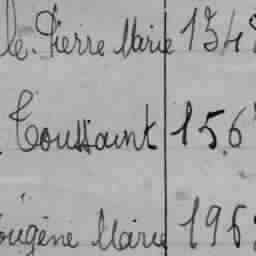 le. Pierre Marie 154
Toussaint 156
ougène Marie 196